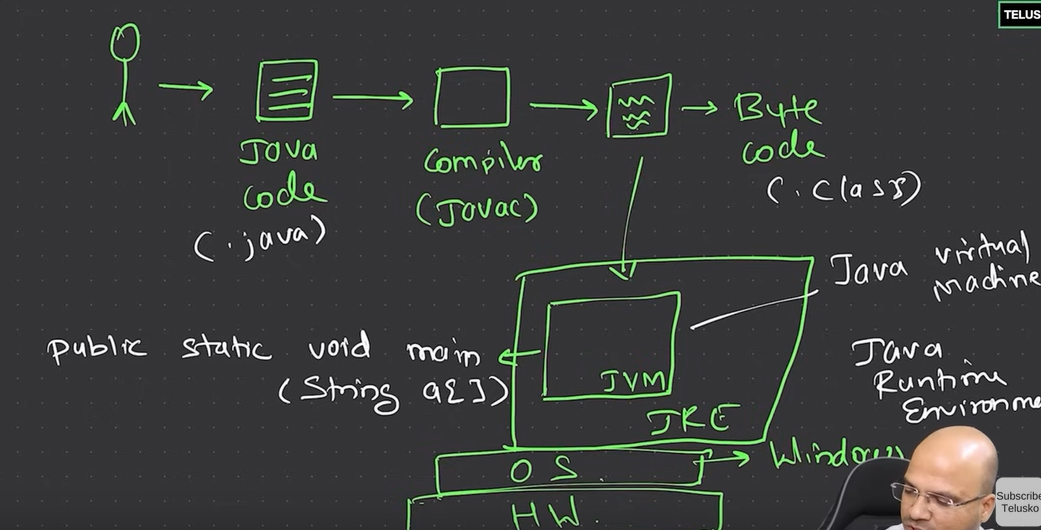 TELUS
Java
code
(.java)
Compiler
(Javac)
Byte
code
(.class)
Java virtual
Machine
public static void main
(String a[])
JVM
JRE
Java
Runtime
Environme
OS
Windows
HW.
Subscribe
Telusko